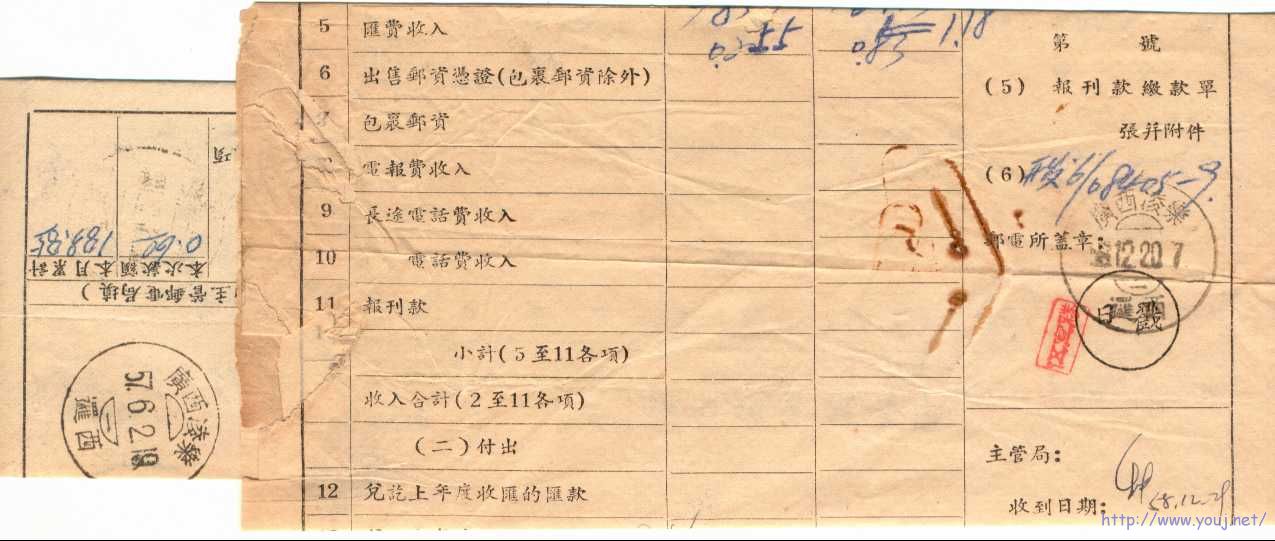 5 匯費收入
0.55 0.83 1.18
6 出售郵資憑證(包裹郵資除外)
包裹郵資
電報費收入
9 長途電話費收入
10 電話費收入
11 報刊款
小計(5至11各項)
收入合計(2至11各項)
(二)付出
12 兌訖上年度收匯的匯款
第 號
(5) 報刊款繳款單
張幷附件
(6)
郵電所蓋章:
廣西淩樂
58.12.20.7
(一)
邏西
日戳
主管局:
收到日期: 58.12.21
項
0.60
本次款額
本月累計
主管郵電局填)
廣西淩樂
57.6.2.19
(一)
邏西
http://www.youj.net/